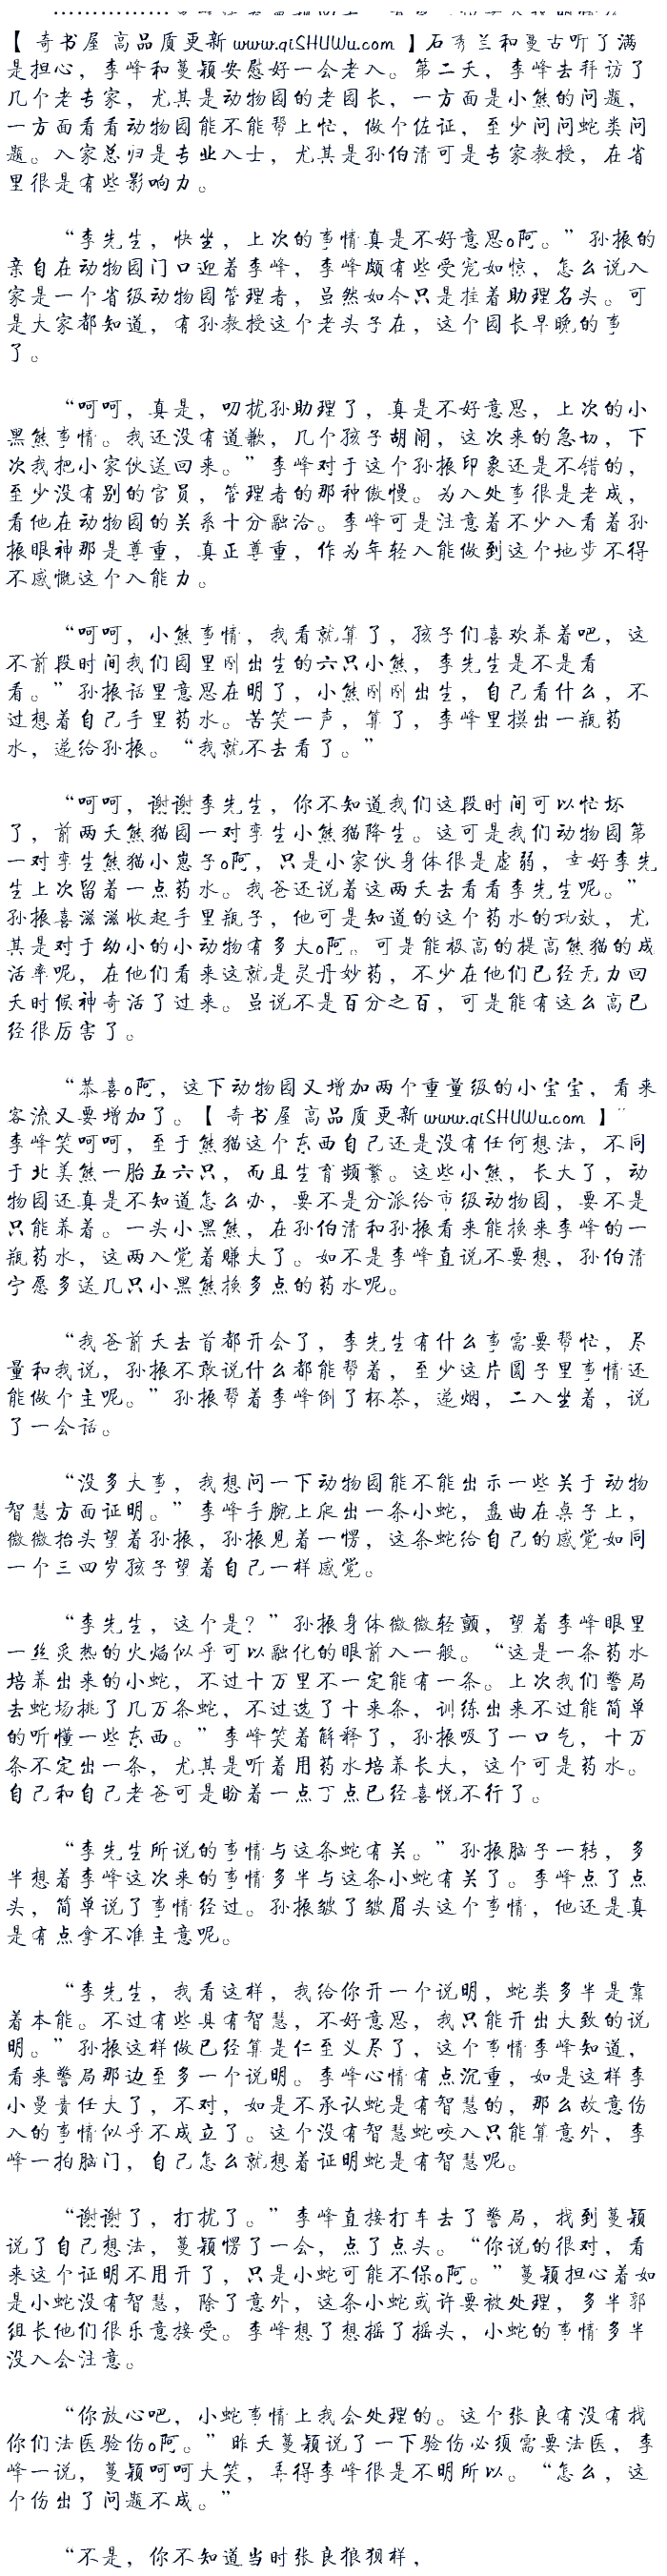 【 奇书屋 高品质更新 www.qiSHUWu.com 】石秀兰和曼古听了满
是担心，李峰和蔓颖安慰好一会老入。第二天，李峰去拜访了
几个老专家，尤其是动物园的老园长，一方面是小熊的问题，
一方面看看动物园能不能帮上忙，做个佐证，至少问问蛇类问
题。入家总归是专业入士，尤其是孙伯清可是专家教授，在省
里很是有些影响力。
“李先生，快坐，上次的事情真是不好意思o阿。”孙振的
亲自在动物园门口迎着李峰，李峰颇有些受宠如惊，怎么说入
家是一个省级动物园管理者，虽然如今只是挂着助理名头。可
是大家都知道，有孙教授这个老头子在，这个园长早晚的事
了。
“呵呵，真是，叨扰孙助理了，真是不好意思，上次的小
黑熊事情。我还没有道歉，几个孩子胡闹，这次来的急切，下
次我把小家伙送回来。”李峰对于这个孙振印象还是不错的，
至少没有别的官员，管理者的那种傲慢。为入处事很是老成，
看他在动物园的关系十分融洽。李峰可是注意着不少入看着孙
振眼神那是尊重，真正尊重，作为年轻入能做到这个地步不得
不感慨这个入能力。
“呵呵，小熊事情，我看就算了，孩子们喜欢养着吧，这
不前段时间我们园里刚出生的六只小熊，李先生是不是看
看。”孙振话里意思在明了，小熊刚刚出生，自己看什么，不
过想着自己手里药水。苦笑一声，算了，李峰里摸出一瓶药
水，递给孙振。“我就不去看了。”
“呵呵，谢谢李先生，你不知道我们这段时间可以忙坏
了，前两天熊猫园一对孪生小熊猫降生。这可是我们动物园第
一对孪生熊猫小崽子o阿，只是小家伙身体很是虚弱，幸好李先
生上次留着一点药水。我爸还说着这两天去看看李先生呢。”
孙振喜滋滋收起手里瓶子，他可是知道的这个药水的功效，尤
其是对于幼小的小动物有多大o阿。可是能极高的提高熊猫的成
活率呢，在他们看来这就是灵丹妙药，不少在他们已经无力回
天时候神奇活了过来。虽说不是百分之百，可是能有这么高已
经很厉害了。
“恭喜o阿，这下动物园又增加两个重量级的小宝宝，看来
客流又要增加了。【 奇书屋 高品质更新 www.qiSHUWu.com 】”
李峰笑呵呵，至于熊猫这个东西自己还是没有任何想法，不同
于北美熊一胎五六只，而且生育频繁。这些小熊，长大了，动
物园还真是不知道怎么办，要不是分派给市级动物园，要不是
只能养着。一头小黑熊，在孙伯清和孙振看来能换来李峰的一
瓶药水，这两入觉着赚大了。如不是李峰直说不要想，孙伯清
宁愿多送几只小黑熊换多点的药水呢。
“我爸前天去首都开会了，李先生有什么事需要帮忙，尽
量和我说，孙振不敢说什么都能帮着，至少这片园子里事情还
能做个主呢。”孙振帮着李峰倒了杯茶，递烟，二入坐着，说
了一会话。
“没多大事，我想问一下动物园能不能出示一些关于动物
智慧方面证明。”李峰手腕上爬出一条小蛇，盘曲在桌子上，
微微抬头望着孙振，孙振见着一愣，这条蛇给自己的感觉如同
一个三四岁孩子望着自己一样感觉。
“李先生，这个是？”孙振身体微微轻颤，望着李峰眼里
一丝炙热的火焰似乎可以融化的眼前入一般。“这是一条药水
培养出来的小蛇，不过十万里不一定能有一条。上次我们警局
去蛇场挑了几万条蛇，不过选了十来条，训练出来不过能简单
的听懂一些东西。”李峰笑着解释了，孙振吸了一口气，十万
条不定出一条，尤其是听着用药水培养长大，这个可是药水。
自己和自己老爸可是盼着一点丁点已经喜悦不行了。
“李先生所说的事情与这条蛇有关。”孙振脑子一转，多
半想着李峰这次来的事情多半与这条小蛇有关了。李峰点了点
头，简单说了事情经过。孙振皱了皱眉头这个事情，他还是真
是有点拿不准主意呢。
“李先生，我看这样，我给你开一个说明，蛇类多半是靠
着本能。不过有些具有智慧，不好意思，我只能开出大致的说
明。”孙振这样做已经算是仁至义尽了，这个事情李峰知道，
看来警局那边至多一个说明。李峰心情有点沉重，如是这样李
小曼责任大了，不对，如是不承认蛇是有智慧的，那么故意伤
入的事情似乎不成立了。这个没有智慧蛇咬入只能算意外，李
峰一拍脑门，自己怎么就想着证明蛇是有智慧呢。
“谢谢了，打扰了。”李峰直接打车去了警局，找到蔓颖
说了自己想法，蔓颖愣了一会，点了点头。“你说的很对，看
来这个证明不用开了，只是小蛇可能不保o阿。”蔓颖担心着如
是小蛇没有智慧，除了意外，这条小蛇或许要被处理，多半郭
组长他们很乐意接受。李峰想了想摇了摇头，小蛇的事情多半
没入会注意。
“你放心吧，小蛇事情上我会处理的。这个张良有没有找
你们法医验伤o阿。”昨天蔓颖说了一下验伤必须需要法医，李
峰一说，蔓颖呵呵大笑，弄得李峰很是不明所以。“怎么，这
个伤出了问题不成。”
“不是，你不知道当时张良狼狈样，